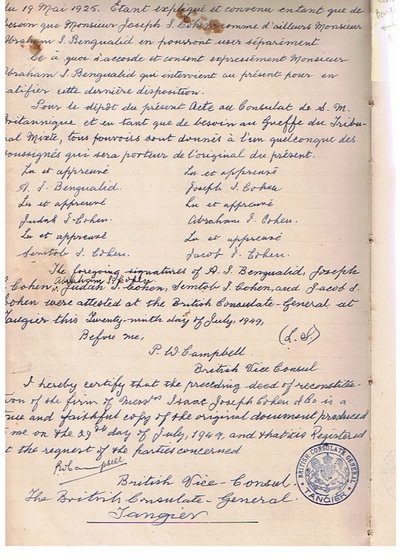 du 19 Mai 1925. Etant expliqué et convenu entant que de
besoin que Monsieur Joseph I. Cohen comme d'ailleurs Monsieur
Abraham I. Bengualid en pourront user séparément
Ce a quoi s'accorde et consent expressément Monsieur
Abraham I. Bengualid qui intervient au présent pour en
ratifier cette dernière disposition.
Pour le dépôt du présent Acte au Consulat de S. M.
Britannique et en tant que de besoin au Greffe du Tribu-
nal Mixte, tous pouvoirs sont donnés à l'un quelconque des
soussignés qui sera porteur de l'original du présent.
Lu et approuvé Lu et approuvé
A. I. Bengualid. Joseph I. Cohen
Lu et approuvé Lu et approuvé
Judah I. Cohen. Abraham I. Cohen.
Lu et approuvé Lu et approuvé
Semtob I. Cohen. Jacob I. Cohen.
The foregoing signatures of A. I. Bengualid, Joseph
I. Cohen, Abraham I. Cohen, Judah I. Cohen, Semtob I. Cohen, and Jacob I.
Cohen were attested at the British Consulate-General at
Tangier this Twenty-ninth day of July, 1949.
Before me, (L.S.)
P. W Campbell
British Vice Consul
I hereby certify that the preceding deed of reconstitu-
tion of the firm of Messrs Isaac Joseph Cohen & Co is a
true and faithful copy of the original document produced
to me on the 29th day of July, 1949, and that it is Registered
at the request of the parties concerned
British Vice-Consul.
The British Consulate-General
Tangier
BRITISH CONSULATE GENERAL
TANGIER